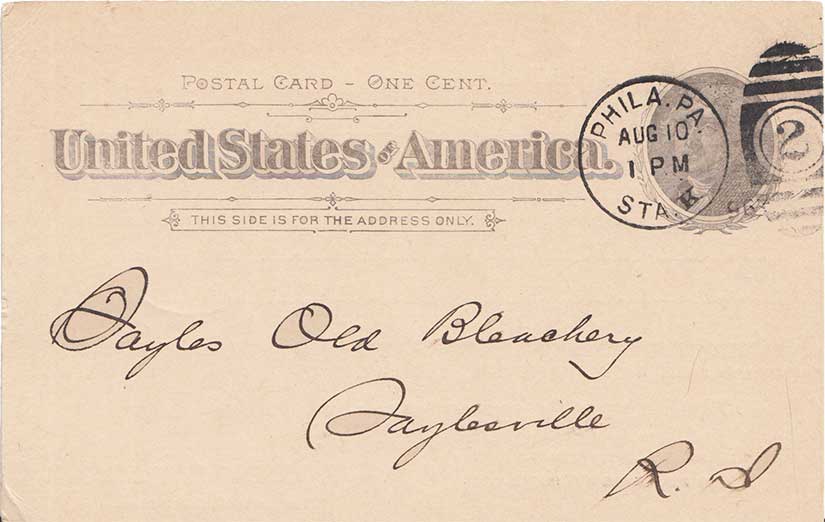 POSTAL CARD - ONE CENT.
United States OF America.
THIS SIDE IS FOR THE ADDRESS ONLY.
PHILA. PA.
AUG 10
1 PM
STA. K
2
Sayles Old Bleachery
Saylesville
R. I